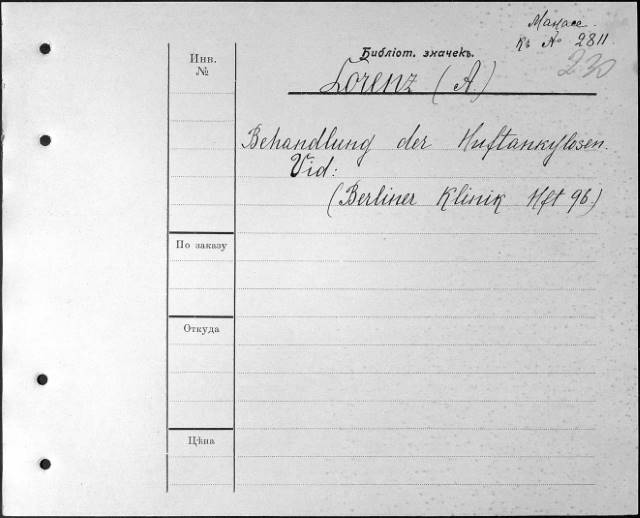 Манасс.
Къ № 2811
230
Библіот. значекъ.
Lorenz (A.)
Инв.
№
Behandlung der Huftankylosen.
Vid:
(Berliner Klinik Hft 96.)
По заказу
Откуда
Цѣна